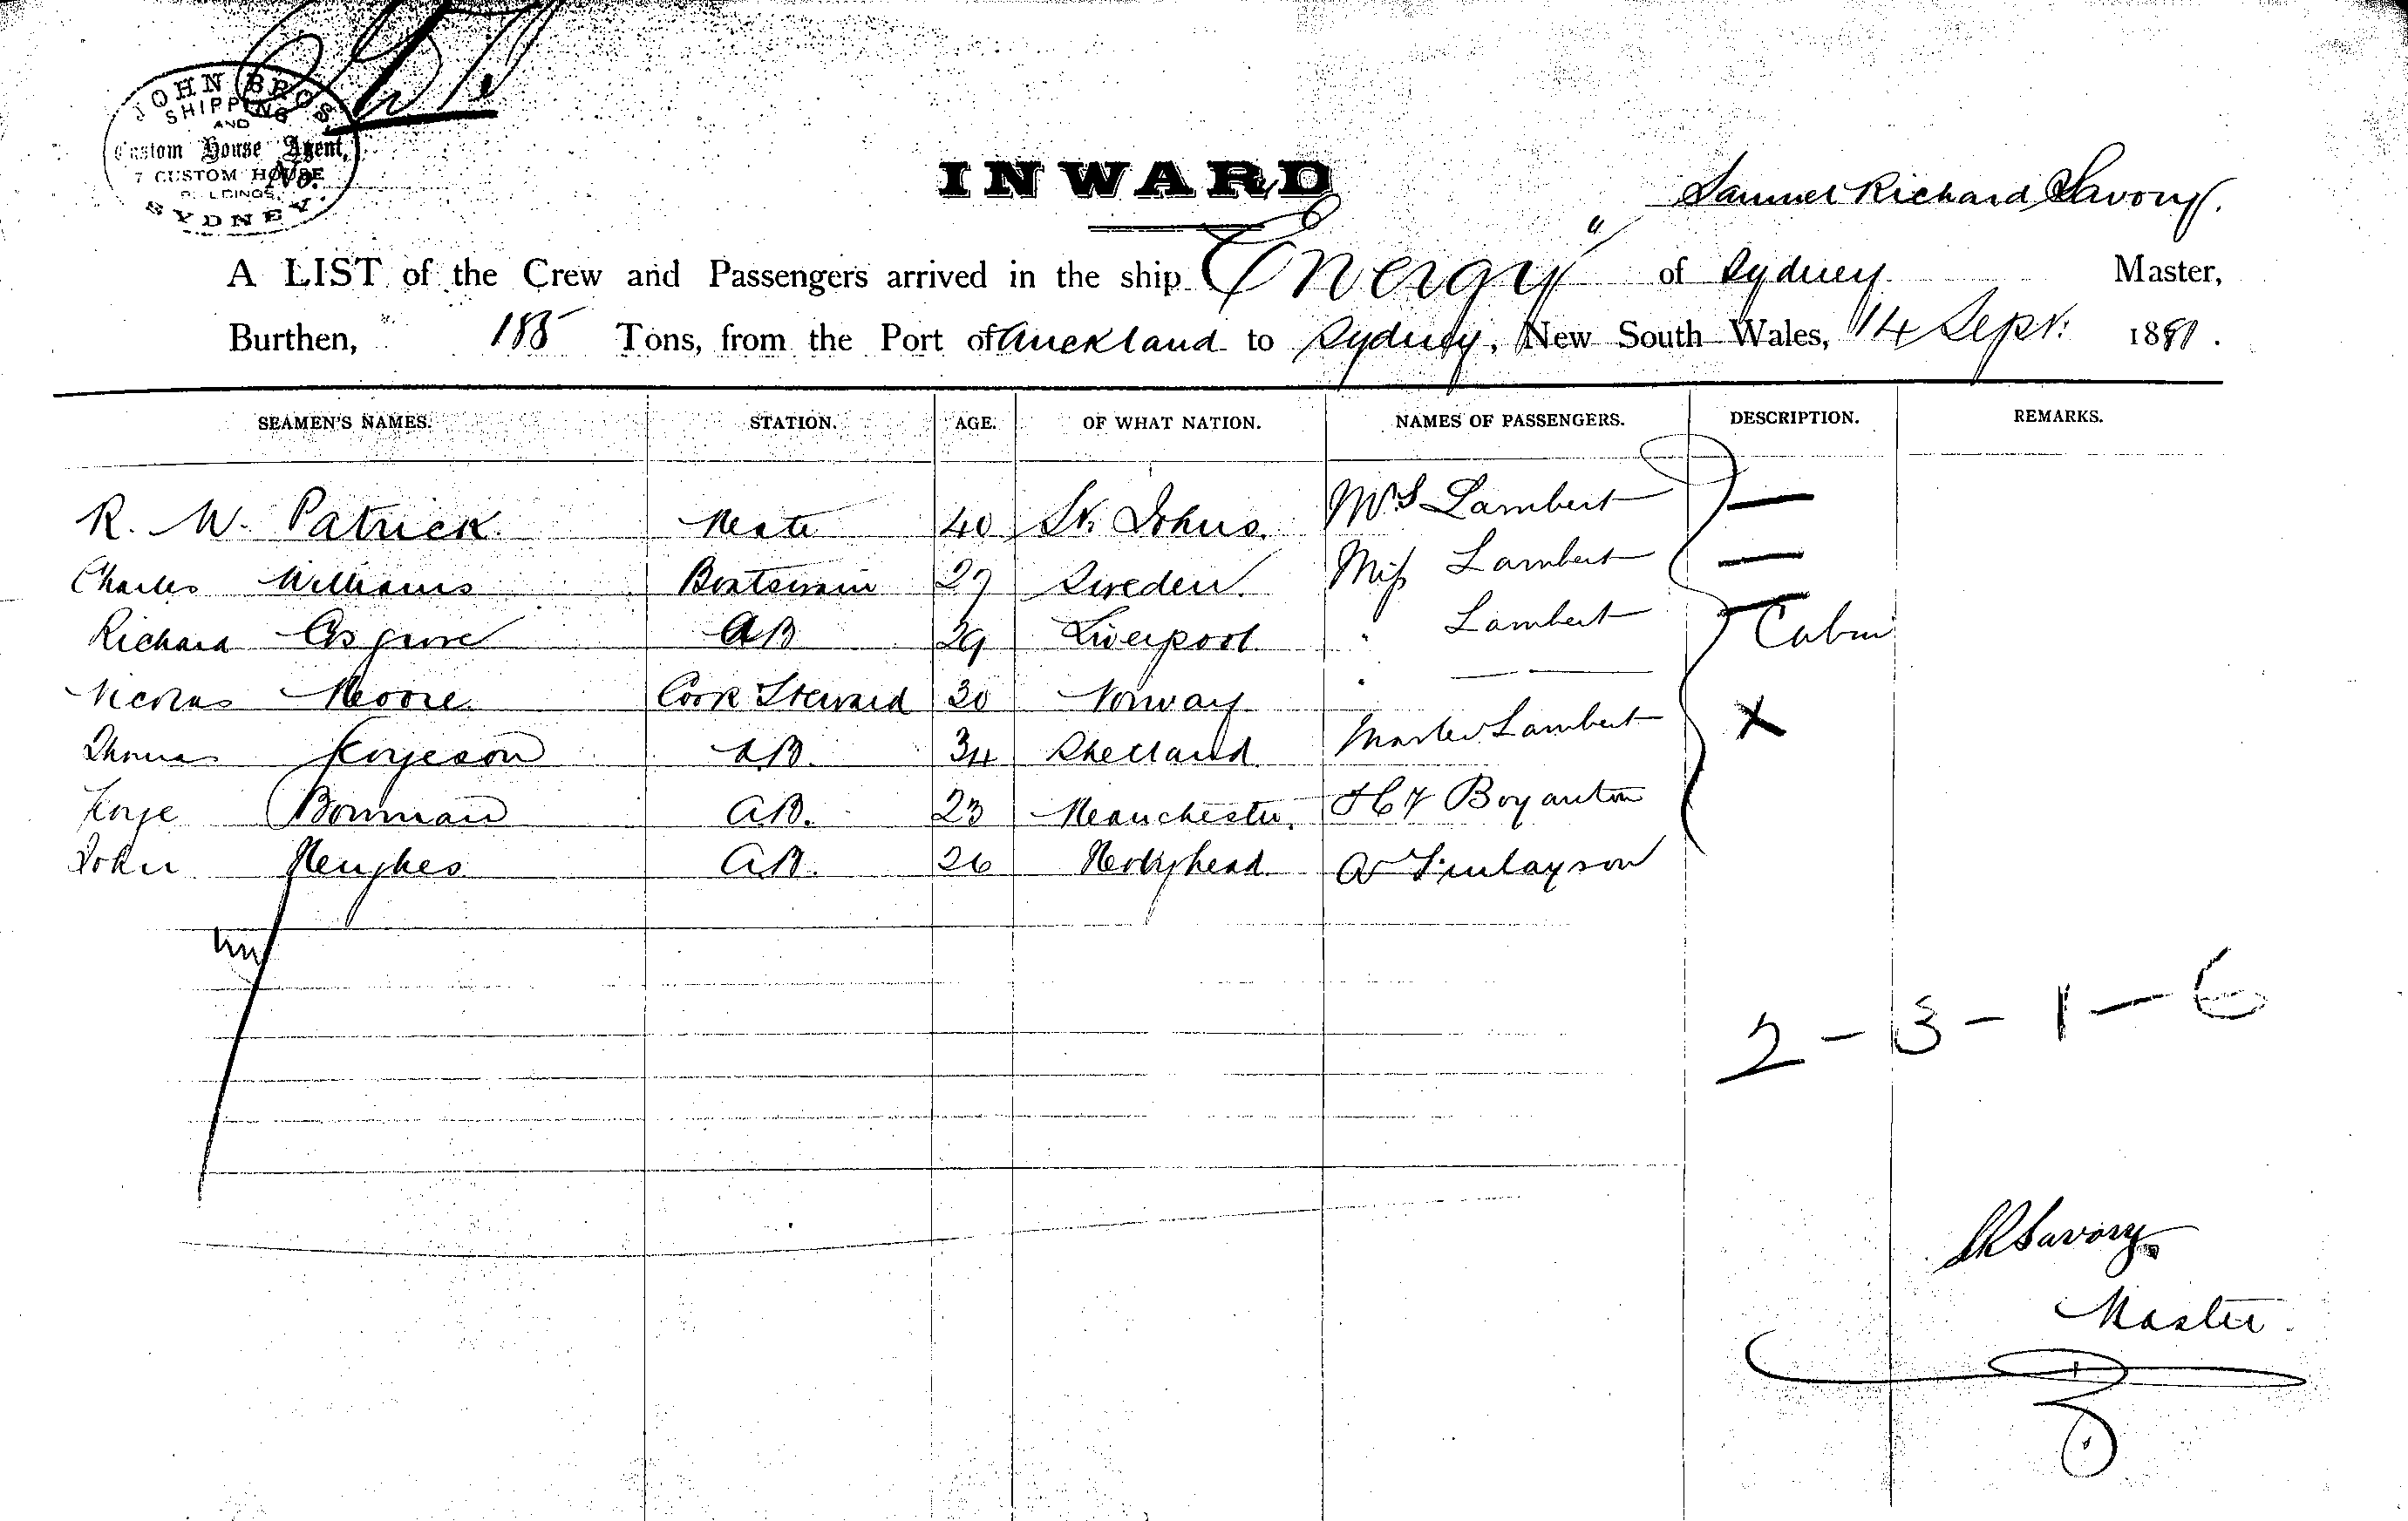 JOHN BROS.
SHIPPING
AND
Custom House Agent,
7 CUSTOM HOUSE
BUILDINGS.
SYDNEY.
No.
INWARD
Samuel Richard Savory.
A LIST of the Crew and Passengers arrived in the ship "Energy" of Sydney Master,
Burthen, 185 Tons, from the Port of Auckland to Sydney, New South Wales, 14 Sept: 1881.
SEAMEN'S NAMES. STATION. AGE. OF WHAT NATION. NAMES OF PASSENGERS. DESCRIPTION. REMARKS.
R. W. Patrick Mate 40 St. Johns. Mrs Lambert —
Charles Williams Boatswain 27 Sweden. Miss Lambert —
Richard Cosgrove AB 29 Liverpool " Lambert Cabin
Nicolas Moore Cook Steward 30 Norway " —
Thomas AB. 34 Shetland Master Lambert X
Bowman AB. 23 Manchester. Boyanton
John Hughes AB. 26 Holyhead A Finlayson
2 - 3 - 1 - 6
SR Savory
Master